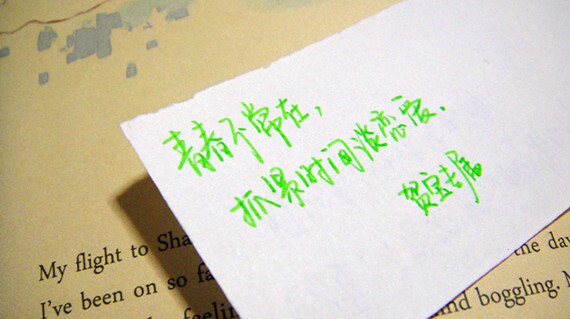 青春不常在，
抓紧时间谈恋爱.
My flight to Sha
I've been on so fa
feelin
the day
nd boggling.